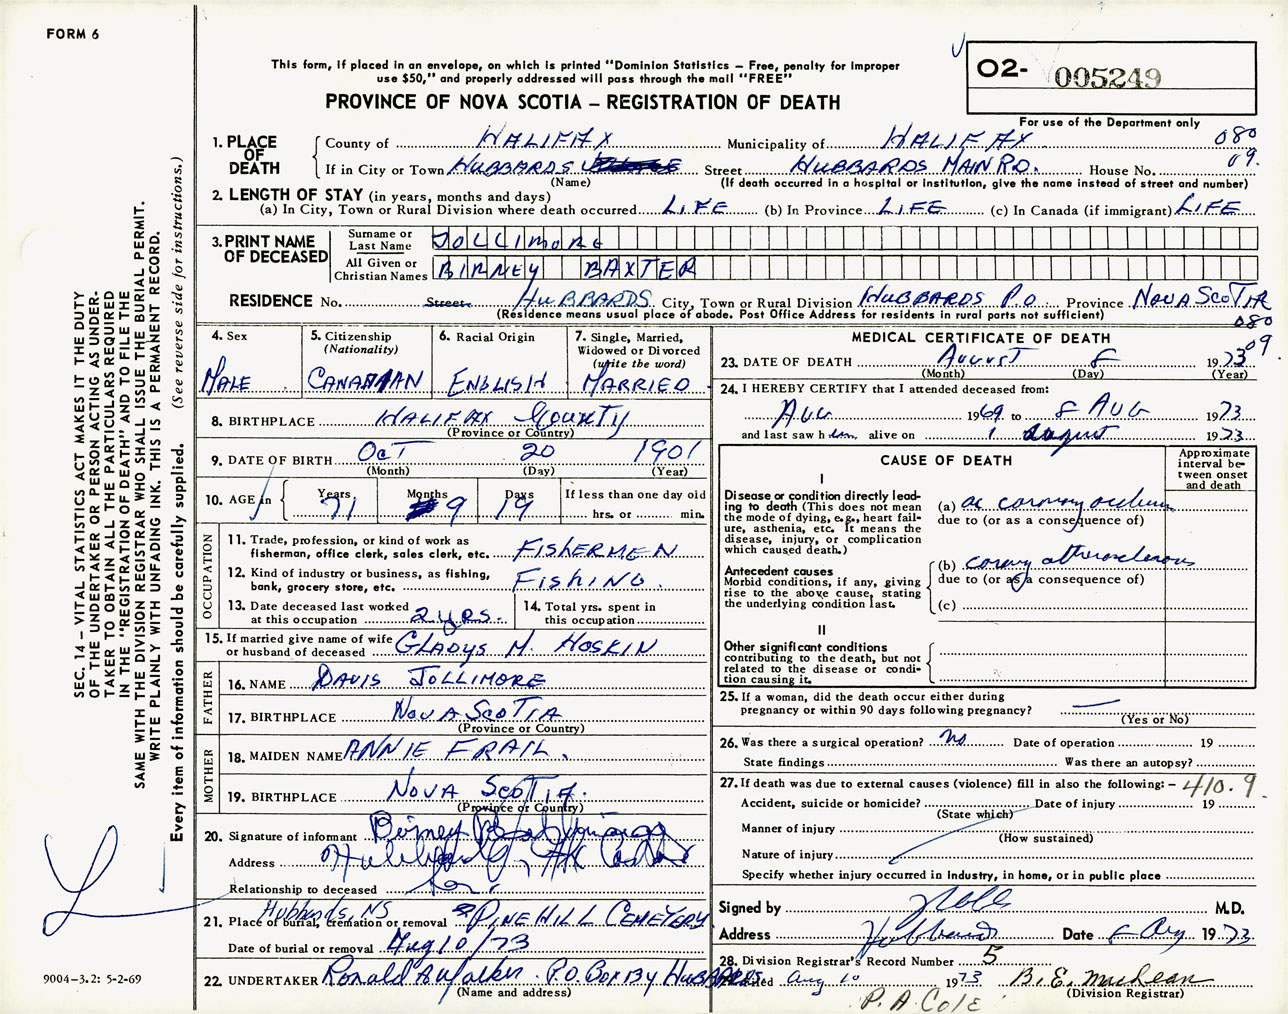 FORM 6
This form, if placed in an envelope, on which is printed "Dominion Statistics – Free, penalty for improper
use $50," and properly addressed will pass through the mail "FREE"
PROVINCE OF NOVA SCOTIA – REGISTRATION OF DEATH
02- 005249
For use of the Department only
080
09.
1. PLACE OF DEATH County of HALIFAX Municipality of HALIFAX
If in City or Town HUBBARDS Street HUBBARDS MAIN RD. House No.
(Name) (If death occurred in a hospital or institution, give the name instead of street and number)
2. LENGTH OF STAY (in years, months and days)
(a) In City, Town or Rural Division where death occurred LIFE (b) In Province LIFE (c) In Canada (if immigrant) LIFE
3. PRINT NAME OF DECEASED Surname or Last Name JOLLIMORE
All Given or Christian Names BIRNEY BAXTER
RESIDENCE No. Street HUBBARDS City, Town or Rural Division HUBBARDS P.O. Province NOVA SCOTIA
(Residence means usual place of abode. Post Office Address for residents in rural parts not sufficient)
080
09.
4. Sex MALE
5. Citizenship (Nationality) CANADIAN
6. Racial Origin ENGLISH
7. Single, Married, Widowed or Divorced (write the word) MARRIED
8. BIRTHPLACE HALIFAX COUNTY
(Province or Country)
9. DATE OF BIRTH OCT 20 1901
(Month) (Day) (Year)
10. AGE in Years Months Days If less than one day old
71 9 19 hrs. or min.
OCCUPATION
11. Trade, profession, or kind of work as
fisherman, office clerk, sales clerk, etc. FISHERMEN
12. Kind of industry or business, as fishing,
bank, grocery store, etc. FISHING.
13. Date deceased last worked
at this occupation 2 yrs.
14. Total yrs. spent in
this occupation
15. If married give name of wife
or husband of deceased GLADYS M. HOSKIN
FATHER
16. NAME DAVIS JOLLIMORE
17. BIRTHPLACE NOVA SCOTIA
(Province or Country)
MOTHER
18. MAIDEN NAME ANNIE FRAIL.
19. BIRTHPLACE NOVA SCOTIA.
(Province or Country)
20. Signature of informant Birney
Address Hubbards,
Relationship to deceased Son.
21. Place of burial, cremation or removal Hubbards, NS PINE HILL CEMETERY
Date of burial or removal Aug 10/73
22. UNDERTAKER Ronald A Walker P.O. Box 134 HUBBARDS
(Name and address)
MEDICAL CERTIFICATE OF DEATH
23. DATE OF DEATH AUGUST 8 1973
(Month) (Day) (Year)
24. I HEREBY CERTIFY that I attended deceased from:
AUG 1969 to 8 AUG 1973
and last saw him alive on 1 august 1973
CAUSE OF DEATH
Approximate interval between onset and death
I
Disease or condition directly leading to death (This does not mean the mode of dying, e.g., heart failure, asthenia, etc. It means the disease, injury, or complication which caused death.)
(a) ac coronary occlusion
due to (or as a consequence of)
Antecedent causes
Morbid conditions, if any, giving rise to the above cause, stating the underlying condition last.
(b) coronary atherosclerosis
due to (or as a consequence of)
(c)
II
Other significant conditions
contributing to the death, but not related to the disease or condition causing it.
25. If a woman, did the death occur either during
pregnancy or within 90 days following pregnancy? —
(Yes or No)
26. Was there a surgical operation? no Date of operation 19
State findings Was there an autopsy?
27. If death was due to external causes (violence) fill in also the following: – 410.9
Accident, suicide or homicide? Date of injury 19
(State which)
Manner of injury
(How sustained)
Nature of injury
Specify whether injury occurred in industry, in home, or in public place
Signed by M.D.
Address Hubbards Date 8 Aug 1973
28. Division Registrar's Record Number 5
Filed Aug 10 1973 B. E. MacLean
(Division Registrar)
P. A. Cole
SEC. 14 – VITAL STATISTICS ACT MAKES IT THE DUTY
OF THE UNDERTAKER OR PERSON ACTING AS UNDER-
TAKER TO OBTAIN ALL THE PARTICULARS REQUIRED
IN THE "REGISTRATION OF DEATH" AND TO FILE THE
SAME WITH THE DIVISION REGISTRAR WHO SHALL ISSUE THE BURIAL PERMIT.
WRITE PLAINLY WITH UNFADING INK. THIS IS A PERMANENT RECORD.
Every item of information should be carefully supplied. (See reverse side for instructions.)
9004–3.2: 5-2-69